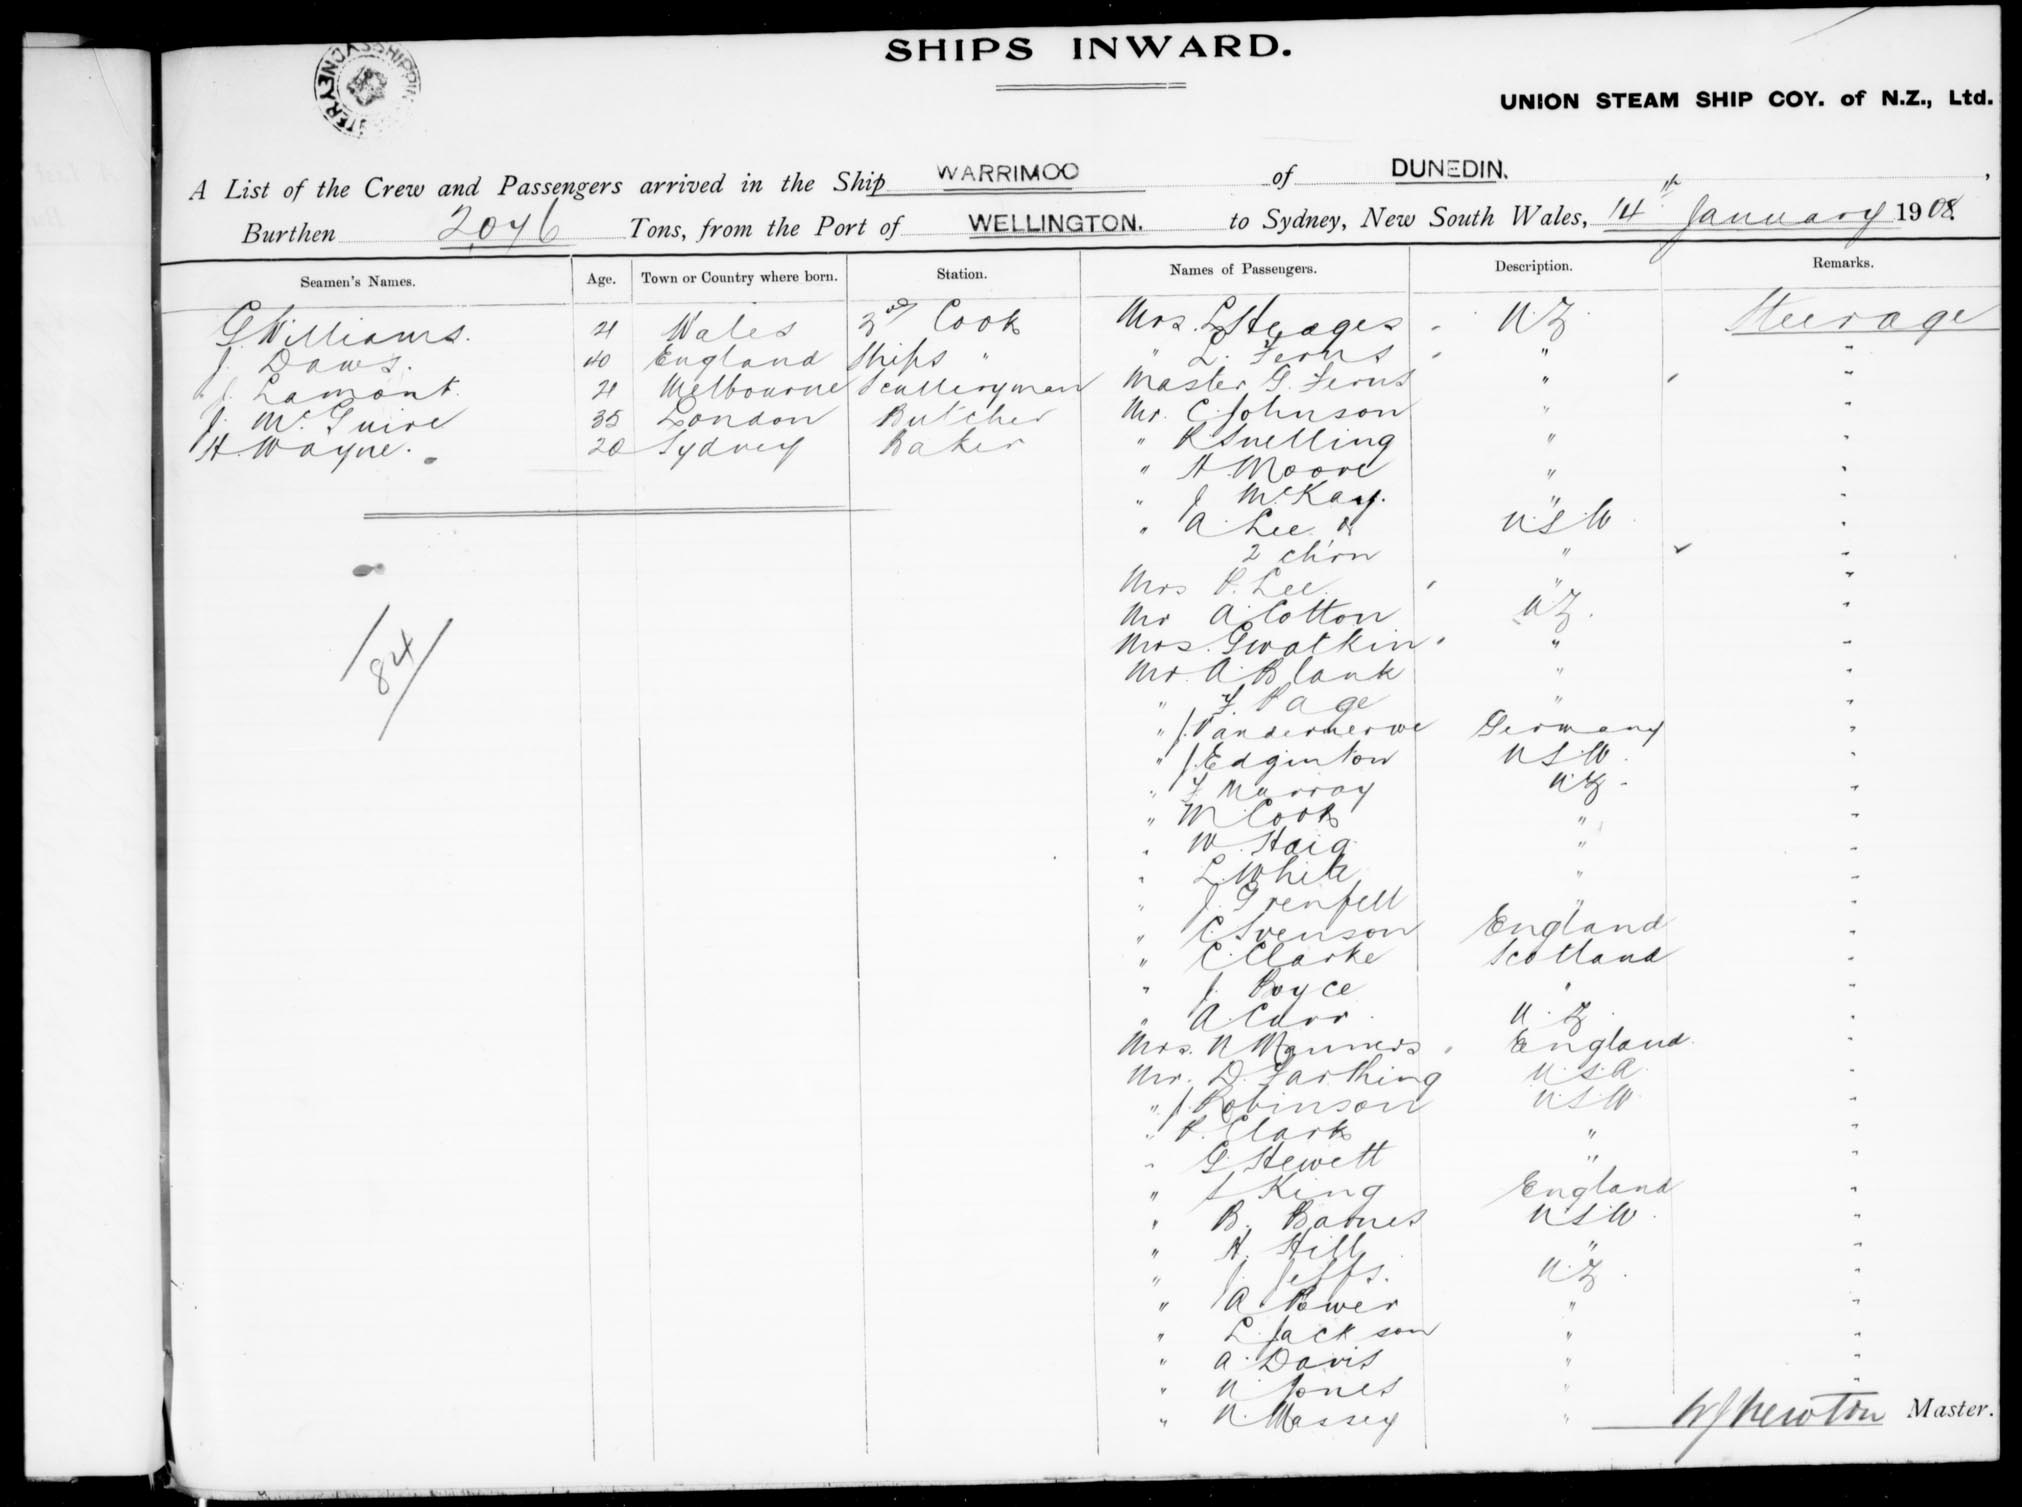 SHIPS INWARD.
UNION STEAM SHIP COY. of N.Z., Ltd.
A List of the Crew and Passengers arrived in the Ship WARRIMOO of DUNEDIN.,
Burthen 2076 Tons, from the Port of WELLINGTON. to Sydney, New South Wales, 14th January 1908.
Seamen's Names. Age. Town or Country where born. Station. Names of Passengers. Description. Remarks.
G Williams. 21 Wales Cook Mrs. L Hedges N.Z. Steerage
J. Daws. 40 England Ships " " L. Ferns " "
J. Lamont. 21 Melbourne Sculleryman Master G. Ferns "
J. McGuire 35 London Butcher Mr. C. Johnson " "
H. Wayne. 20 Sydney Baker " R Snelling " "
" H. Moore " "
" J McKay. " "
" A. Lee & N.S.W "
2 ch'rn " "
Mrs P. Lee. " "
Mr A. Cotton N.Z. "
Mrs. Gwatkin " "
Mr. A. Blank " "
" F. Page " "
" J. Vandermerwe Germany "
" J. Edginton N.S.W. "
" F Murray N.Z. "
" M. Cook " "
" W. Haig " "
" L. White " "
" J. Grenfell " "
" C. Svenson England "
" C. Clarke Scotland "
" J. Boyce " "
" A. Carr. N.Z. "
Mrs. N Manners England "
Mr. D. Farthing U.S.A. "
" J. Robinson N.S.W. "
" P. Clark " "
" G. Hewett " "
" S King England "
" B. Barnes N.S.W. "
" H. Hill " "
" J. Jeffs. N.Z. "
" A Power " "
" L. Jackson " "
" A. Davis " "
" N. Jones " "
" N. Massey "
84
W J Newton Master.